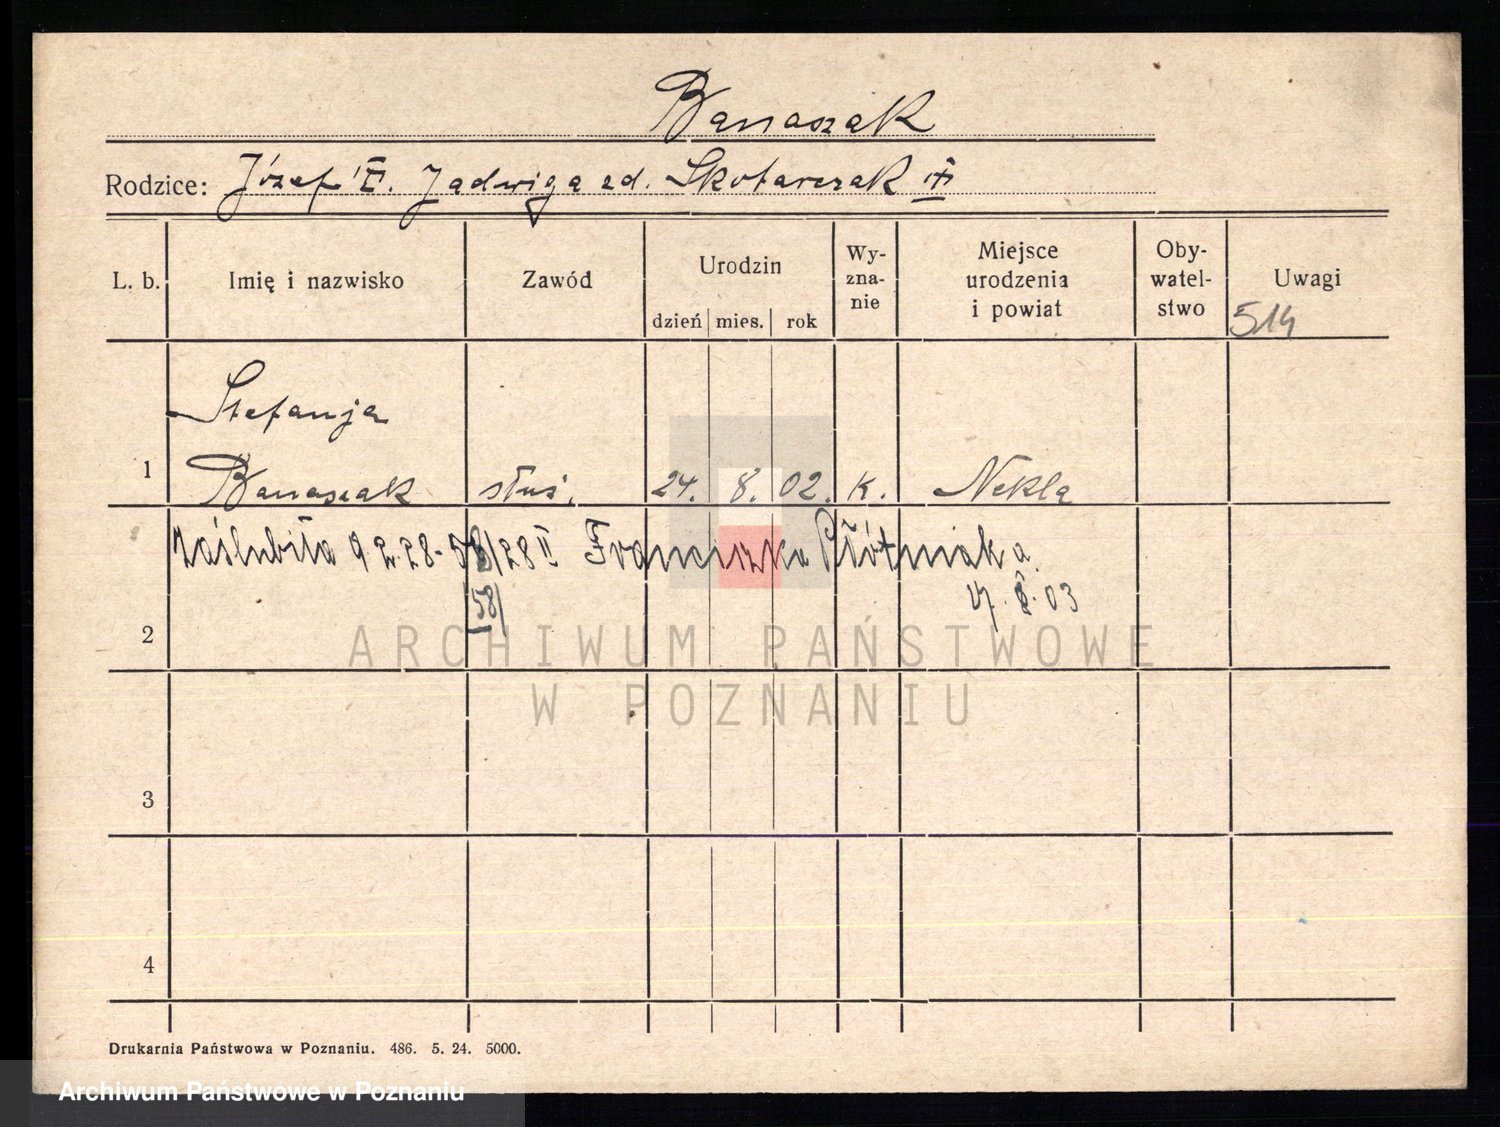 Banaszak
Rodzice: Józef i Jadwiga zd. Skotarczak
L. b. Imię i nazwisko Zawód Urodzin Wy-zna-nie Miejsce urodzenia i powiat Oby-watel-stwo Uwagi
dzień mies. rok
514
Stefanja
1 Banaszak służ. 24. 8. 02. k. Nekla
zaślubiła 9 2 28 - 58/28 II Franciszka Płótniaka
58/ 03
2
ARCHIWUM PAŃSTWOWE
W POZNANIU
3
4
Drukarnia Państwowa w Poznaniu. 486. 5. 24. 5000.
Archiwum Państwowe w Poznaniu